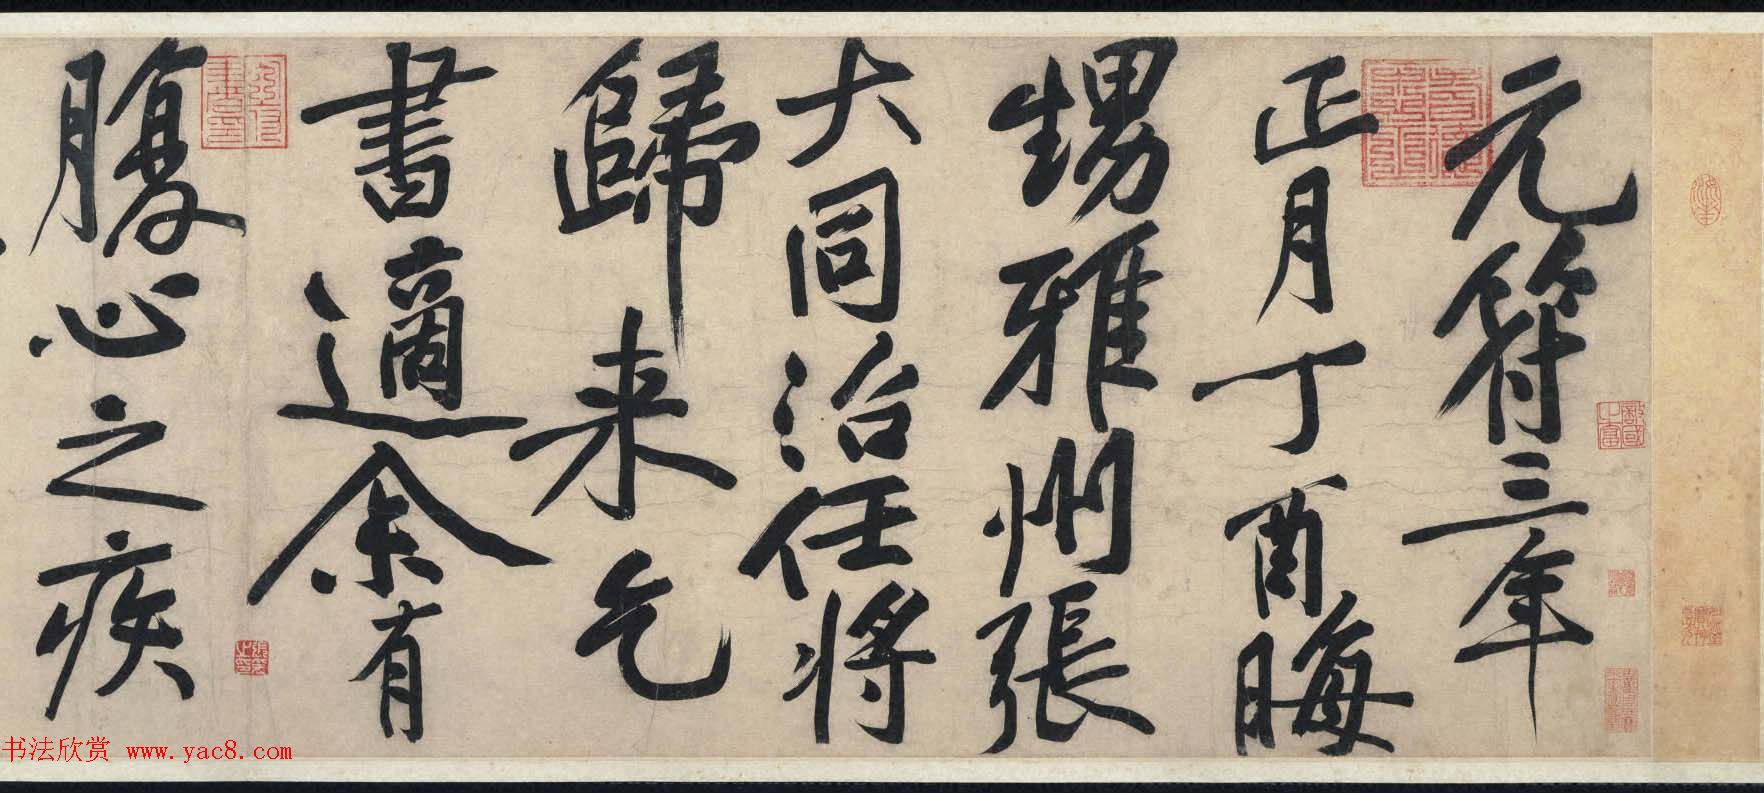 元符三年
正月丁酉晦
甥雅州張
大同治任將
歸来乞
書適余有
腹心之疾
书法欣赏 www.yac8.com